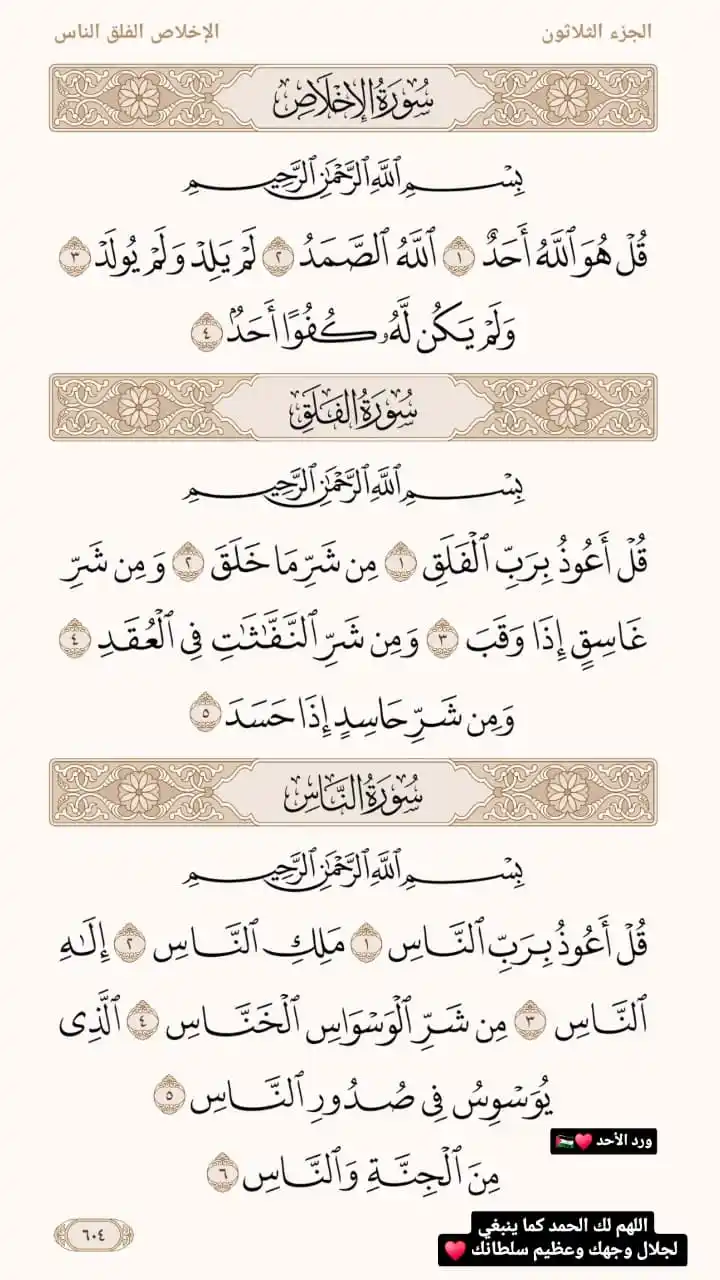 الجزء الثلاثون
الإخلاص الفلق الناس
سُورَةُ الإِخْلَاصِ
بِسْمِ ٱللَّهِ ٱلرَّحْمَٰنِ ٱلرَّحِيمِ
قُلْ هُوَ ٱللَّهُ أَحَدٌ ١ ٱللَّهُ ٱلصَّمَدُ ٢ لَمْ يَلِدْ وَلَمْ يُولَدْ ٣
وَلَمْ يَكُن لَّهُۥ كُفُوًا أَحَدٌۢ ٤
سُورَةُ الفَلَقِ
بِسْمِ ٱللَّهِ ٱلرَّحْمَٰنِ ٱلرَّحِيمِ
قُلْ أَعُوذُ بِرَبِّ ٱلْفَلَقِ ١ مِن شَرِّ مَا خَلَقَ ٢ وَمِن شَرِّ
غَاسِقٍ إِذَا وَقَبَ ٣ وَمِن شَرِّ ٱلنَّفَّٰثَٰتِ فِى ٱلْعُقَدِ ٤
وَمِن شَرِّ حَاسِدٍ إِذَا حَسَدَ ٥
سُورَةُ النَّاسِ
بِسْمِ ٱللَّهِ ٱلرَّحْمَٰنِ ٱلرَّحِيمِ
قُلْ أَعُوذُ بِرَبِّ ٱلنَّاسِ ١ مَلِكِ ٱلنَّاسِ ٢ إِلَٰهِ
ٱلنَّاسِ ٣ مِن شَرِّ ٱلْوَسْوَاسِ ٱلْخَنَّاسِ ٤ ٱلَّذِى
يُوَسْوِسُ فِى صُدُورِ ٱلنَّاسِ ٥
ورد الأحد ♥️🇵🇸
مِنَ ٱلْجِنَّةِ وَٱلنَّاسِ ٦
اللهم لك الحمد كما ينبغي
لجلال وجهك وعظيم سلطانك ♥️
٦٠٤